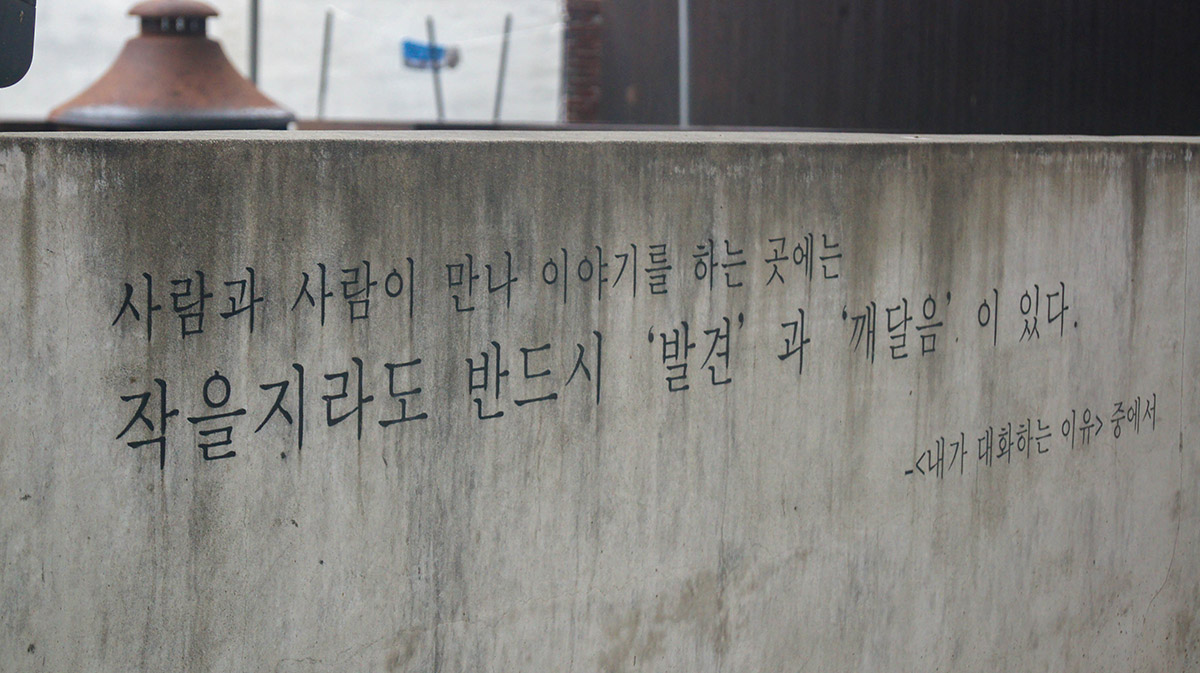 사람과 사람이 만나 이야기를 하는 곳에는
작을지라도 반드시 ‘발견’ 과 ‘깨달음’ 이 있다.
-<내가 대화하는 이유> 중에서